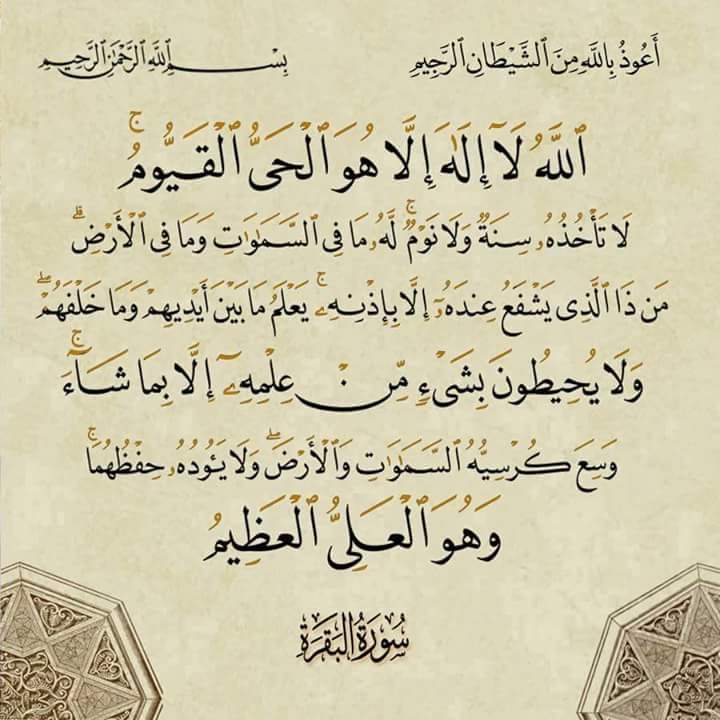 أَعُوذُ بِاللَّهِ مِنَ ٱلشَّيْطَانِ ٱلرَّجِيمِ بِسْمِ ٱللَّهِ ٱلرَّحْمَٰنِ ٱلرَّحِيمِ
ٱللَّهُ لَآ إِلَٰهَ إِلَّا هُوَ ٱلْحَىُّ ٱلْقَيُّومُ ۚ
لَا تَأْخُذُهُۥ سِنَةٌ وَلَا نَوْمٌ ۚ لَّهُۥ مَا فِى ٱلسَّمَٰوَٰتِ وَمَا فِى ٱلْأَرْضِ ۗ
مَن ذَا ٱلَّذِى يَشْفَعُ عِندَهُۥٓ إِلَّا بِإِذْنِهِۦ ۚ يَعْلَمُ مَا بَيْنَ أَيْدِيهِمْ وَمَا خَلْفَهُمْ ۖ
وَلَا يُحِيطُونَ بِشَىْءٍ مِّنْ عِلْمِهِۦٓ إِلَّا بِمَا شَآءَ ۚ
وَسِعَ كُرْسِيُّهُ ٱلسَّمَٰوَٰتِ وَٱلْأَرْضَ ۖ وَلَا يَـُٔودُهُۥ حِفْظُهُمَا ۚ
وَهُوَ ٱلْعَلِىُّ ٱلْعَظِيمُ
سُورَةُ البَقَرَةِ